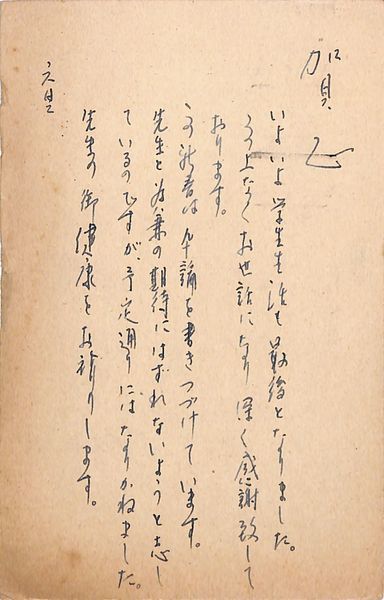 賀正
いよいよ学生生活も最後となりました。
この上なくお世話になり深く感謝致して
おります。
この新春は卒論を書きつづけています。
先生と 兼の期待にはずれないようと志し
ているのですが、予定通りにはなりかねました。
先生の御健康をお祈りします。
元旦